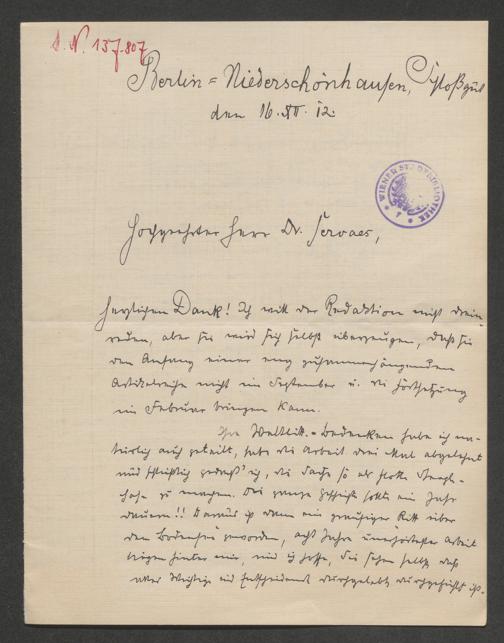 I. N. 137.807
Berlin=Niederschönhausen, Schloßgut
den 16. XII. 12.
WIENER STADTBIBLIOTHEK
Hochgeehrter Herr Dr. Servaes,
herzlichen Dank! Ich will der Redaktion nicht drein-
reden, aber sie wird sich selbst überzeugen, daß sie
den Anfang einer eng zusammenhängenden
Artikelreihe nicht im September u. die Fortsetzung
im Februar bringen kann.
Ihre Weltlit.-Bedenken habe ich na-
türlich auch geteilt, habe die Arbeit drei Mal abgelehnt
und schließlich gedacht, die Sache so als
zu machen. Die ganze Geschichte sollte ein Jahr
dauern!! Daraus ist dann ein Ritt über
den Bodensee geworden, acht Jahre unerhörtester Arbeit
liegen hinter mir, und ich hoffe, Sie sehen selbst, daß
alles Wichtige und Entscheidende durchgelebt, durchgefühlt ist.